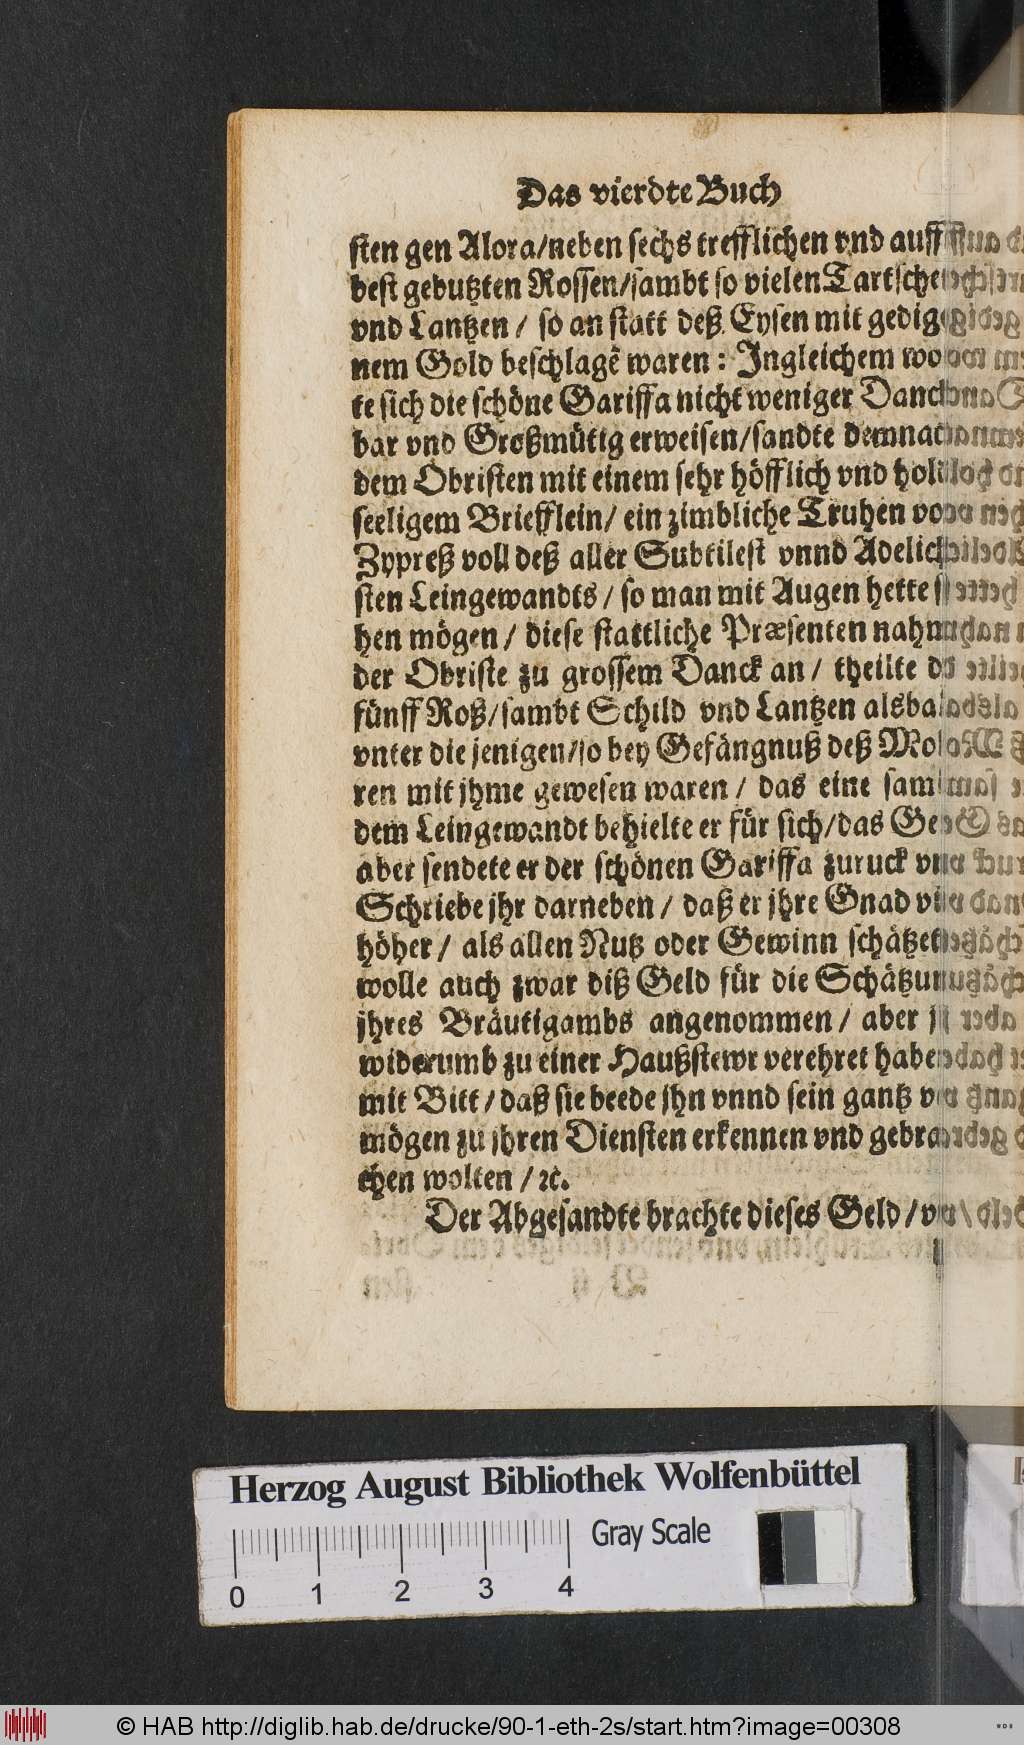 Das vierdte Buch
sten gen Alora/neben sechs trefflichen vnd auff
best gebutzten Rossen/sambt so vielen Tartsche
vnd Lantzen / so an statt deß Eysen mit gedige
nem Gold beschlagē waren: Ingleichem wo
te sich die schöne Gariffa nicht weniger Danck
bar vnd Großmütig erweisen/sandte demnach
dem Obristen mit einem sehr höfflich vnd hold
seeligem Briefflein/ ein zimbliche Truhen vo
Zypreß voll deß aller Subtilest vnnd Adelich
sten Leingewandts / so man mit Augen hette se
hen mögen / diese stattliche Præsenten nahm
der Obriste zu grossem Danck an / theilte d
fünff Roß/sambt Schild vnd Lantzen alsba
vnter die jenigen/so bey Gefängnuß deß Mo
ren mit jhme gewesen waren / das eine sam
dem Leingewandt behielte er für sich/das Ge
aber sendete er der schönen Gariffa zuruck vn
Schriebe jhr darneben / daß er jhre Gnad vi
höher / als allen Nutz oder Gewinn schätzet
wolle auch zwar diß Geld für die Schätzun
jhres Bräutigambs angenommen / aber j
widerumb zu einer Haußstewr verehret habe
mit Bitt / daß sie beede jhn vnnd sein gantz v
mögen zu jhren Diensten erkennen vnd gebra
chen wolten / ꝛc.
Der Abgesandte brachte dieses Geld / v
Herzog August Bibliothek Wolfenbüttel
Gray Scale
0 1 2 3 4
© HAB http://diglib.hab.de/drucke/90-1-eth-2s/start.htm?image=00308